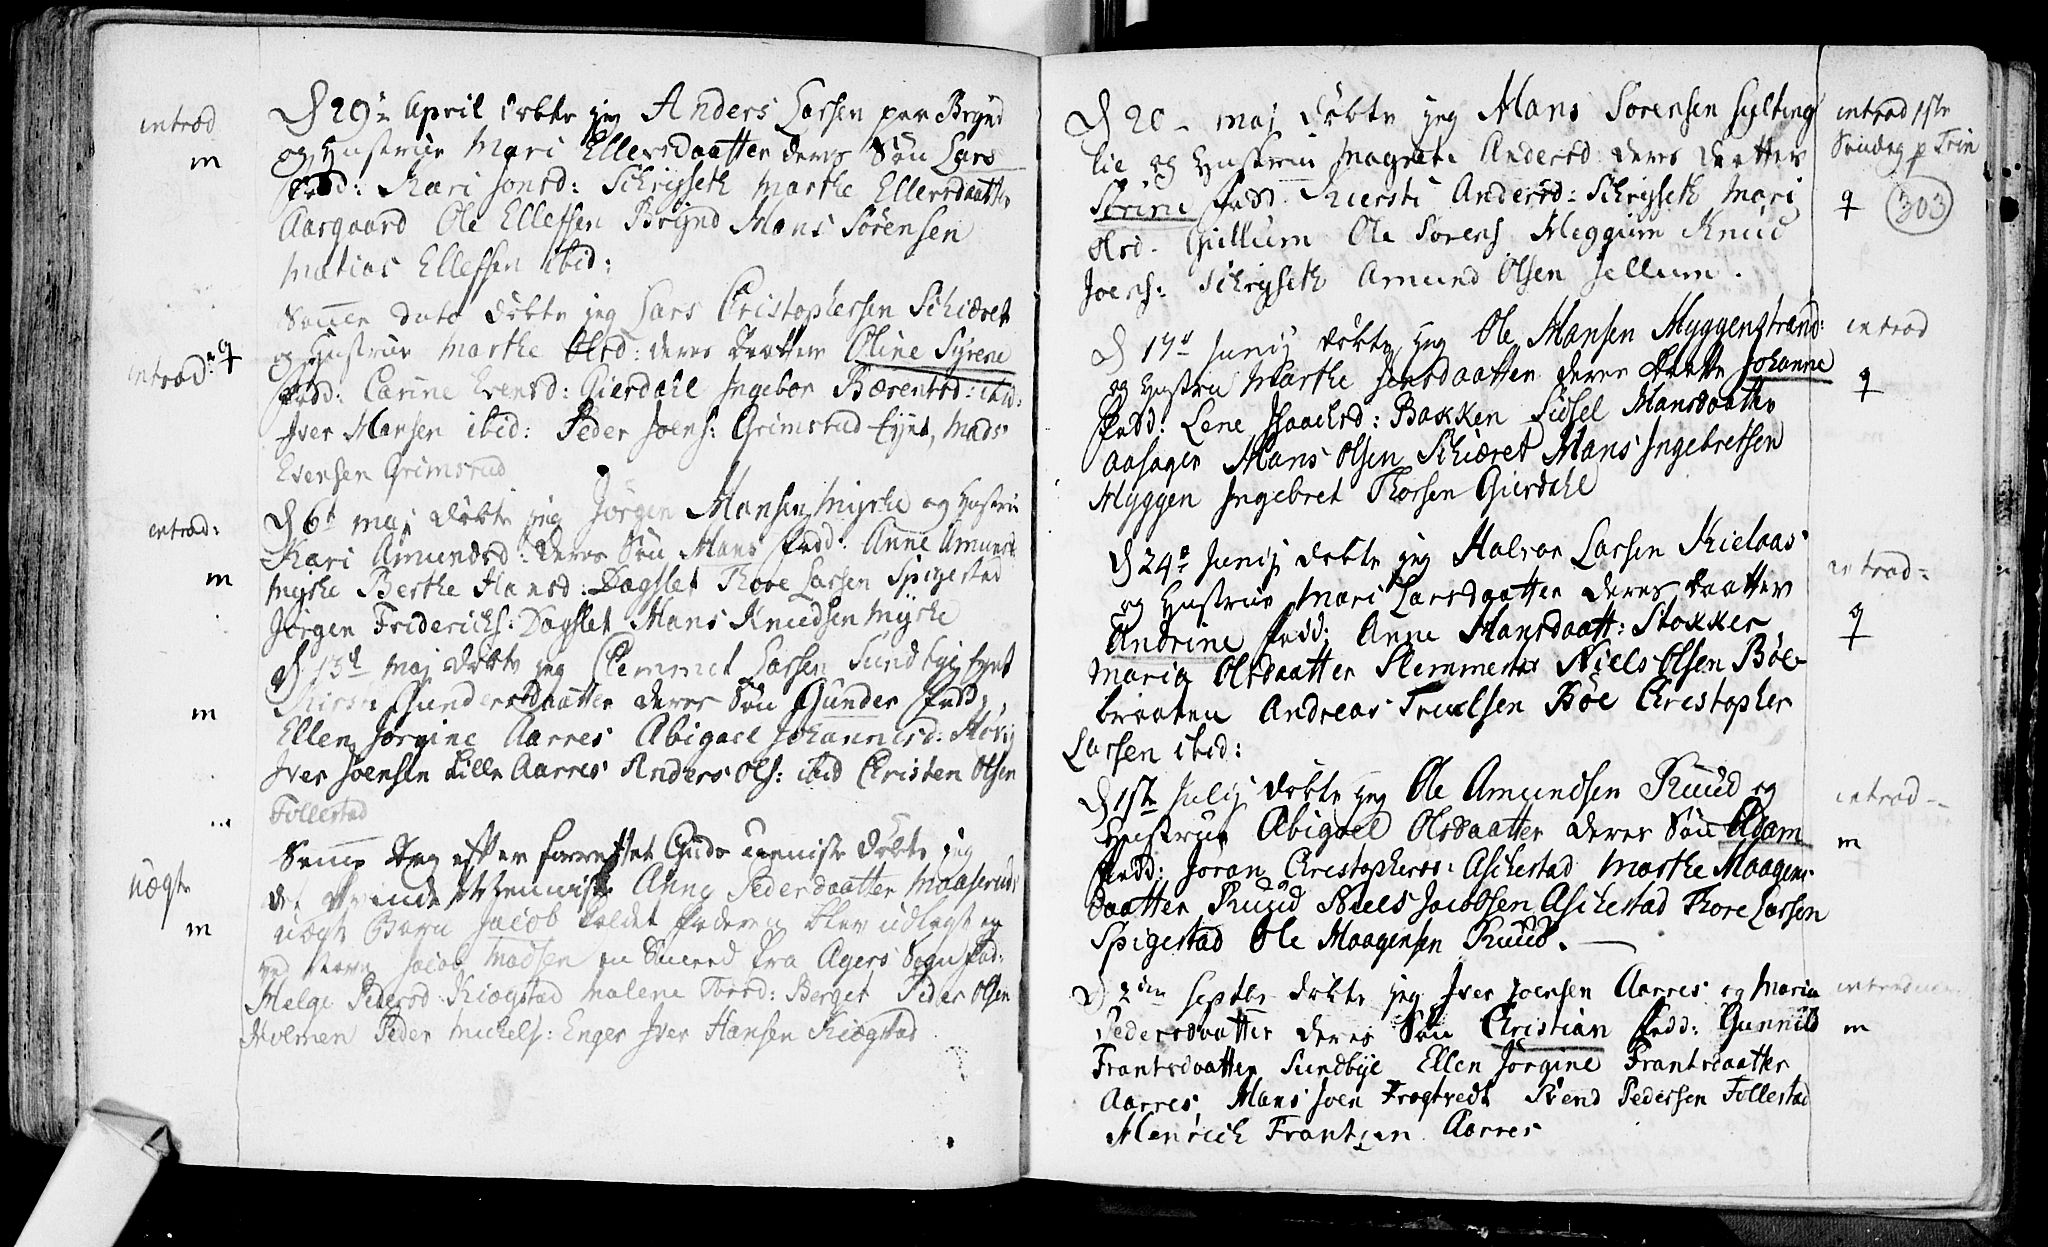 introd
m
D 29de April døbte jeg Anders Larsen paa Brynd
og Hustrue Mari Ellersdaatter deres Søn Lars
Fadd: Kari Jonsd: Schrijseth Marthe Ellersdaatter
Aasgaard Ole Ellefsen Brÿnd Hans Sørensen
Matias Ellefsen ibid:
Samme dato døbte jeg Lars Christophersen Schieret
introd: q
og Hustrue Marthe Olsd: deres Daatter Oline Syrene
Fadd: Carine Evensd: Gierdahl Ingebor Børentsd: ibid:
Iver Hansen ibid: Peder Joens: Grimsrud Eijet, Mads
Evensen Grimsrud
introd:
m
D 6t maj døbte jeg Jörgen Hansen Myrhe og Hustru
Kari Amundsd: deres Søn Hans Fadd: Anne Amunsd
Myrhe Berthe Hansd: Dagslet Thore Larsen Spigestad
Jörgen Friderichs: Dagslet Hans Knudsen Myrhe
D 13d Maj døbte jeg Clemmet Larsen Sundbyj Eyet
m
Kirsti Gundersdaatter deres Søn Gunder Fadd:
Ellen Jörgine Aarres Abigael Johannesd: Høvig
Iver Joensen Lille Aarres Anders Ols: ibid Christen Olsen
Follestad
Samme Dag efter forrettet Guds tieniste døbte jeg
uægte
m
det Anne Pedersdaatter Maaserud:
uægte Barn Jacob kaldet Faderen blev udlagt en
ved Navn Jacob Madsen en Smed fra Agers Sogn Fad:
Helge Pedersd Kiøgstad Malene Torsd: Berget Peder Olsen
Holmen Peder Mickels: Enger Iver Hansen Kiøgstad
D 20 - maj døbte jeg Hans Sörensen Hylting
lie og Hustrue Magrete Andersd deres Daatter
Sörine Fadd Kiersti Andersd: Schrijseth Mari
Olsd. Gullum Ole Sörens Heggum Knud
Joens: Schrijseth Amund Olsen Jellum.
introd 1ste
Søndag p Trin
q
303
D 17de Junij døbte jeg Ole Hansen Myggenstrand:
og Hustru Marthe Jensdaatter deres Daatter Johanne
Fadd: Lene Isaachsd: Bakken Sidsel Hansdaatter
Aasager Hans Olsen Schieret Hans Ingebretsen
Myggen Ingebret Thorsen Gierdahl
introd
q
D 24de Junij døbte jeg Halvor Larsen Kielaas
og Hustrue Mari Larsdaatter deres Daatter
Andrine Fadd: Anne Hansdaatt: Stokker
Maria Olsdaatter Slemmested Niels Olsen Böe-
braaten Andreas Truelsen Böe Christopher
Larsen ibid:
introd:
q
D 1ste Julij døbte jeg Ole Amundsen Ruud og
Hustrue Abigael Olsdaatter deres Søn Adam
Fadd: Joran Christophersd: Aschestad Marthe Maagens-
daatter Ruud Niels Jacobsen Aschestad Thore Larsen
Spigestad Ole Maagensen Ruud.
introd
m
D 2den Septbr døbte jeg Iver Joensen Aarres og Maria
Pedersdaatter deres Søn Christian Fadd: Gunnild
Frantsdaatter Sundbye Ellen Jörgine Frantsdaatter
Aarres, Hans Joen Trøgtvedt Svend Pedersen Follestad
Henrich Frantzen Aarres
m